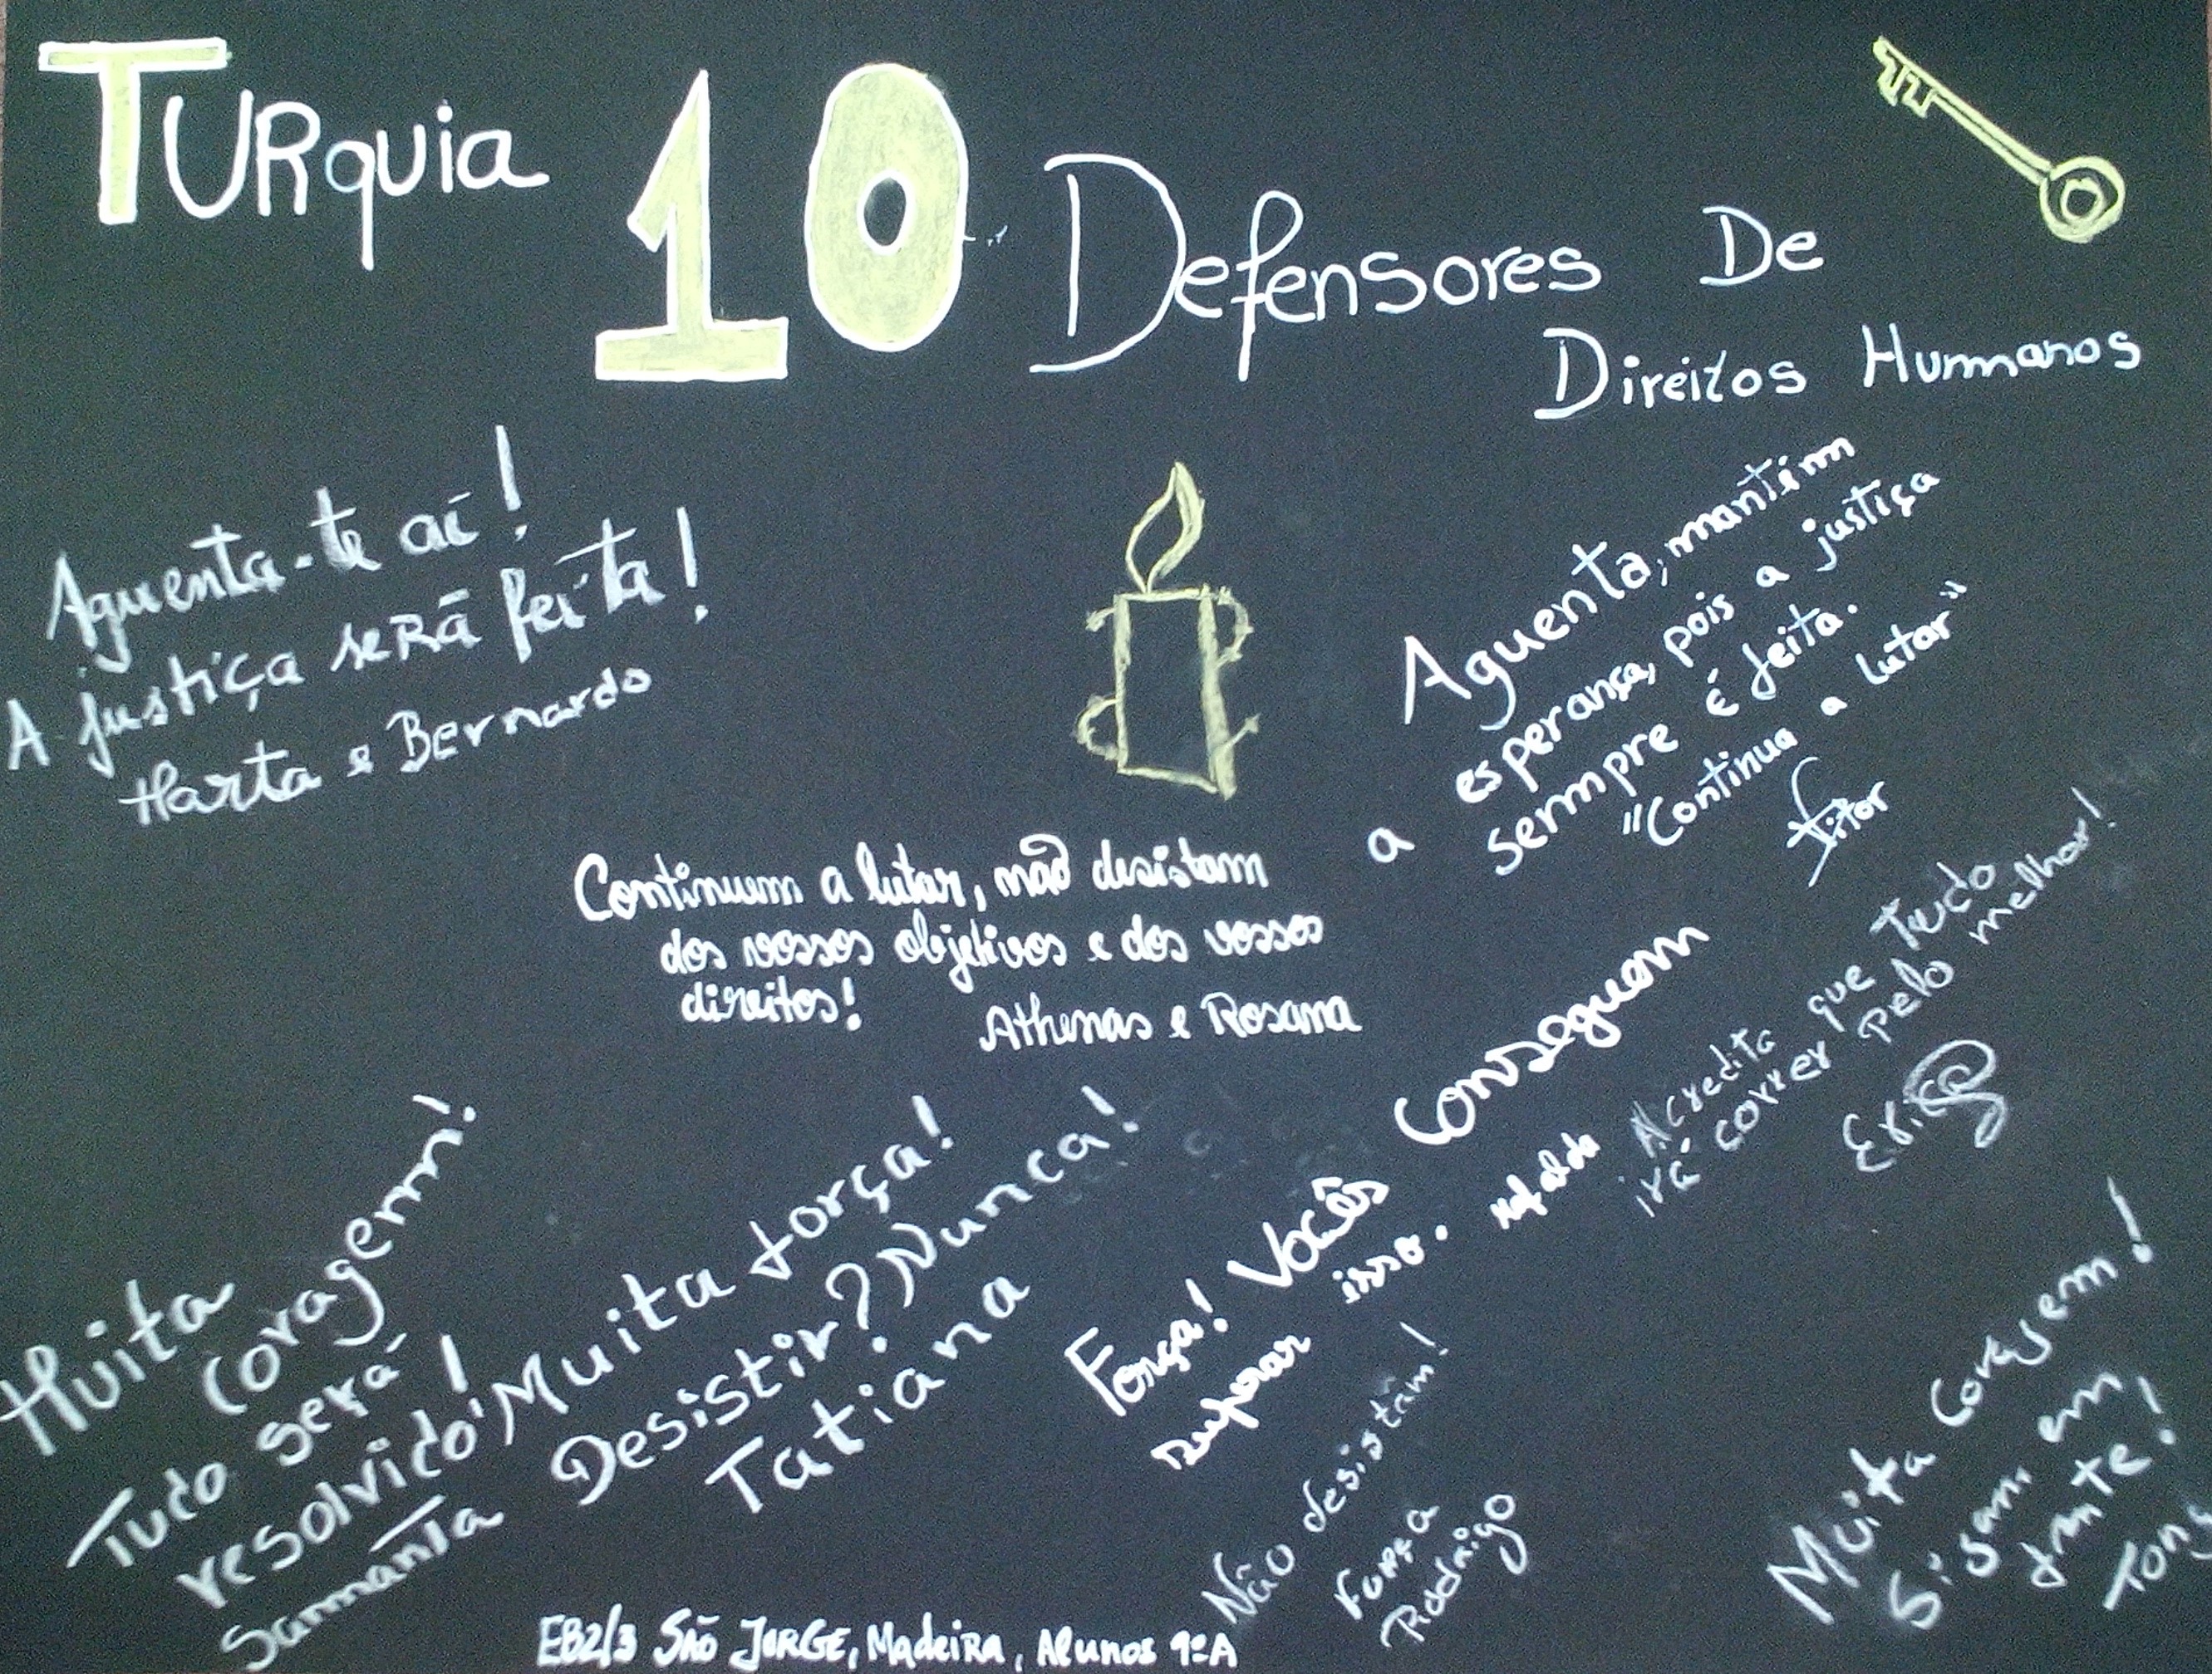 Turquia 10 Defensores De
Direitos Humanos
Aguenta-te aí!
A justiça será feita!
Marta e Bernardo
Aguenta, mantém
a esperança, pois a justiça
sempre é feita.
"Continua a lutar"
Vítor
Continuem a lutar, não desistam
dos vossos objetivos e dos vossos
direitos!
Athenas e Rosana
Acredita que Tudo
irá correr pelo melhor!
Erica
Muita
coragem!
Tudo será
resolvido!
Samanta
Muita força!
Desistir? Nunca!
Tatiana
Força! Vocês conseguem
superar isso.
Não desistam!
Força
Rodrigo
Muita coragem!
Sigam em
frente!
EB2/3 São Jorge, Madeira, Alunos 9ºA